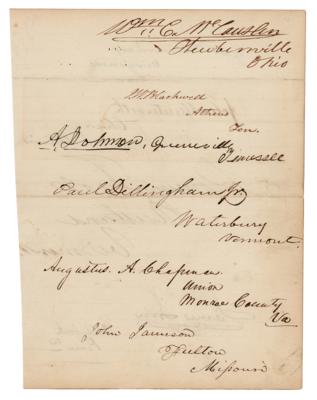 Wm. C. McCauslin
Steubenville
Ohio
J. M. Blackwell
Athens
Ten.
A. Johnson, Greeneville
Tennessee
Paul Dillingham Jr.
Waterbury
Vermont.
Augustus. A. Chapman
Union
Monroe County
Va
John Jameson
Fulton
Missouri